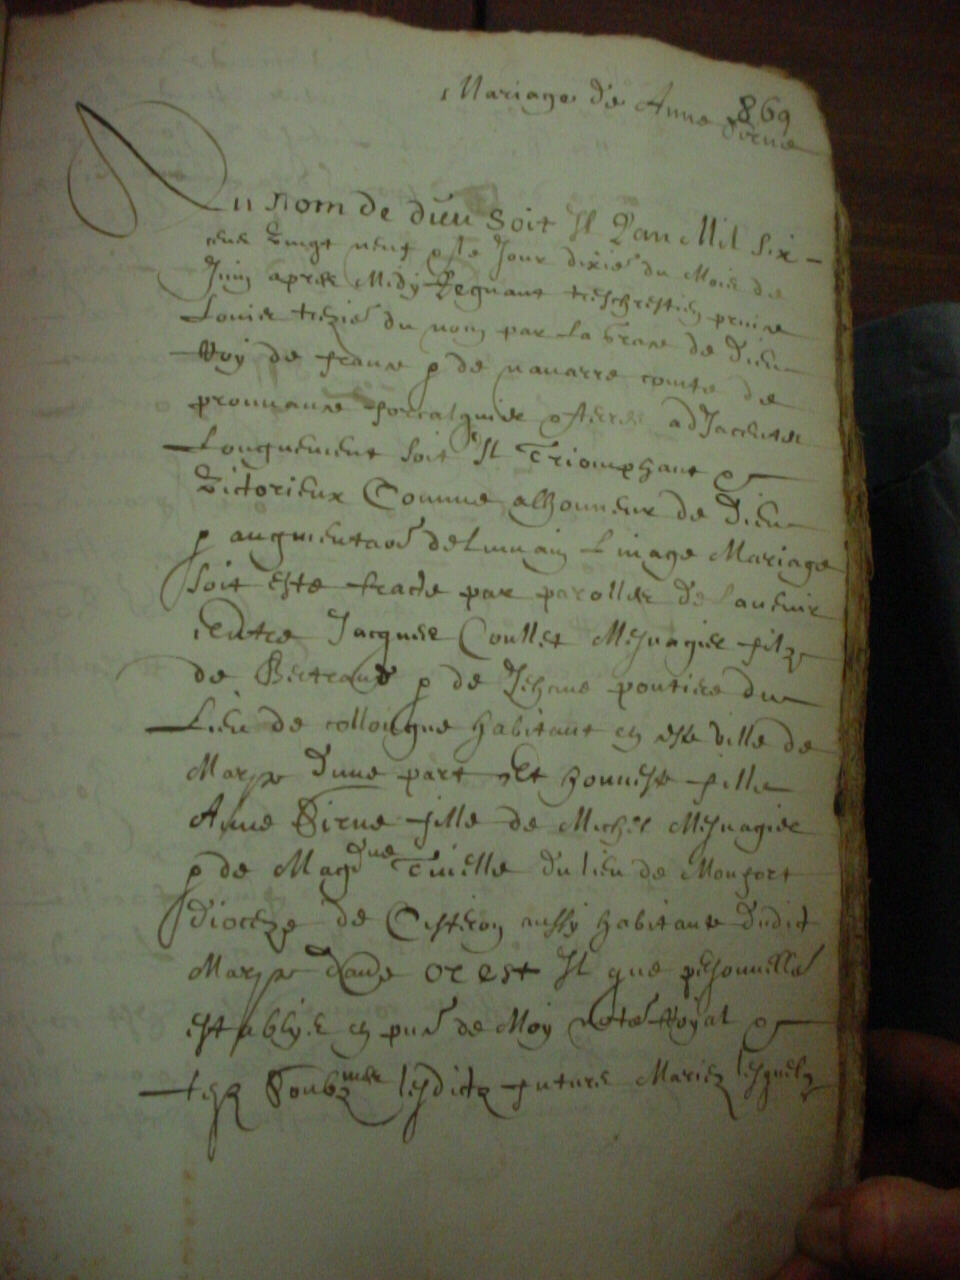 869
Mariage de Anne Sirne
Au nom de dieu soit Il L'an Mil Six
cens vingt neuf & le Jour dixie du Mois de
Juin apres Midy Regnant treschrestien prince
Louis trezie du nom par la Grace de Dieu
Roy de france & de navarre comte de
prouvance forcalquier & terres adJacentes
Longuement soit Il Triomphant &
Victorieux Comme alhonneur de Dieu
& augmentaon de Lumain Linage Mariage
soit este traicte par parolles de Lavenir
Entre Jacques Coullet Mesnagier filz
de Bertrand & de Jehane pontiere du
Lieu de collongue habitant en este ville de
Marse dune part Et honneste fille
Anne Sirne fille de Michel Mesnagier
& de Magdne du lieu de Monfort
dioceze de Cisteron aussy habitante dudict
Marse Or est Il que personnelle
establys en pns de Moy note Royal &
tesz Soubznes lesdictz futurs Mariez lesquelz